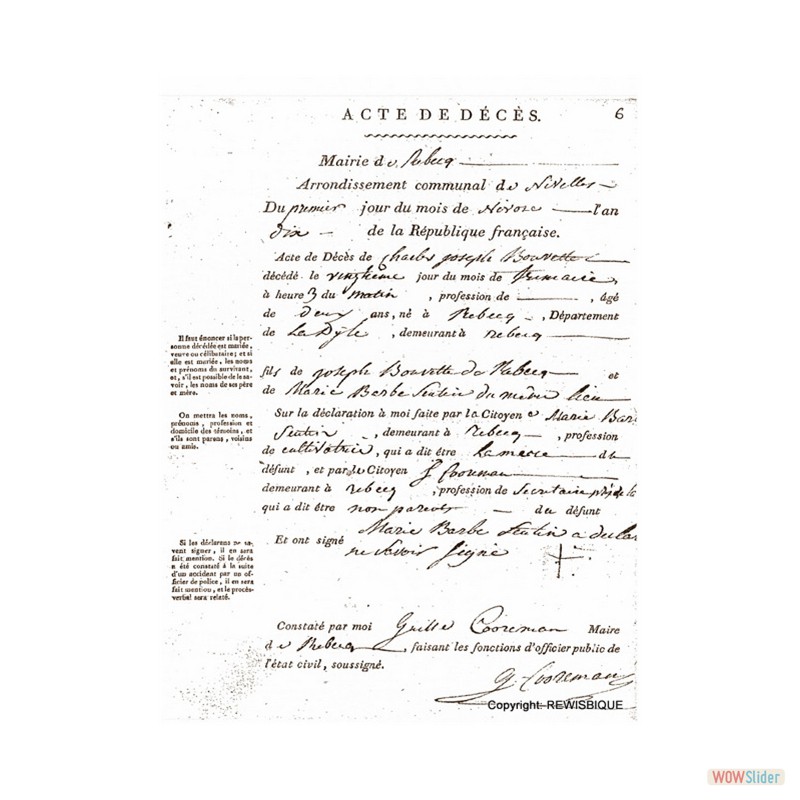 ACTE DE DÉCÈS. 6
Mairie de Rebecq
Arrondissement communal de Nivelles
Du premier jour du mois de Nivose l'an
dix de la République française.
Acte de Décès de Charles joseph Bouvette
décédé le vingtième jour du mois de frimaire,
à heure 3 du matin , profession de , âgé
de deux ans, né à Rebecq , Département
de La Dyle , demeurant à rebecq
Il faut énoncer si la per-
sonne décédée est mariée,
veuve ou célibataire; et si
elle est mariée, les noms
et prénoms du survivant,
et, s'il est possible de le sa-
voir, les noms de ses père
et mère.
fils de joseph Bouvette de Rebecq et
de Marie Barbe du même lieu
On mettra les noms,
prénoms, profession et
domicile des témoins, et
s'ils sont parens, voisins
ou amis.
Sur la déclaration à moi faite par la Citoyenne Marie Bar
, demeurant à rebecq , profession
de cultivatrice, qui a dit être La mere du
défunt , et par le Citoyen Cooreman
demeurant à rebecq , profession de Secretaire
qui a dit être non parent du défunt
Si les déclarans ne sa-
vent signer, il en sera
fait mention. Si le décès
a été constaté à la suite
d'un accident par un of-
ficier de police, il en sera
fait mention, et le procès-
verbal sera relaté.
Et ont signé Marie Barbe a declar
ne savoir signé
Constaté par moi Guille Cooreman Maire
de Rebecq , faisant les fonctions d'officier public de
l'état civil, soussigné.
G. Cooreman
Copyright: REWISBIQUE
WOWSlider